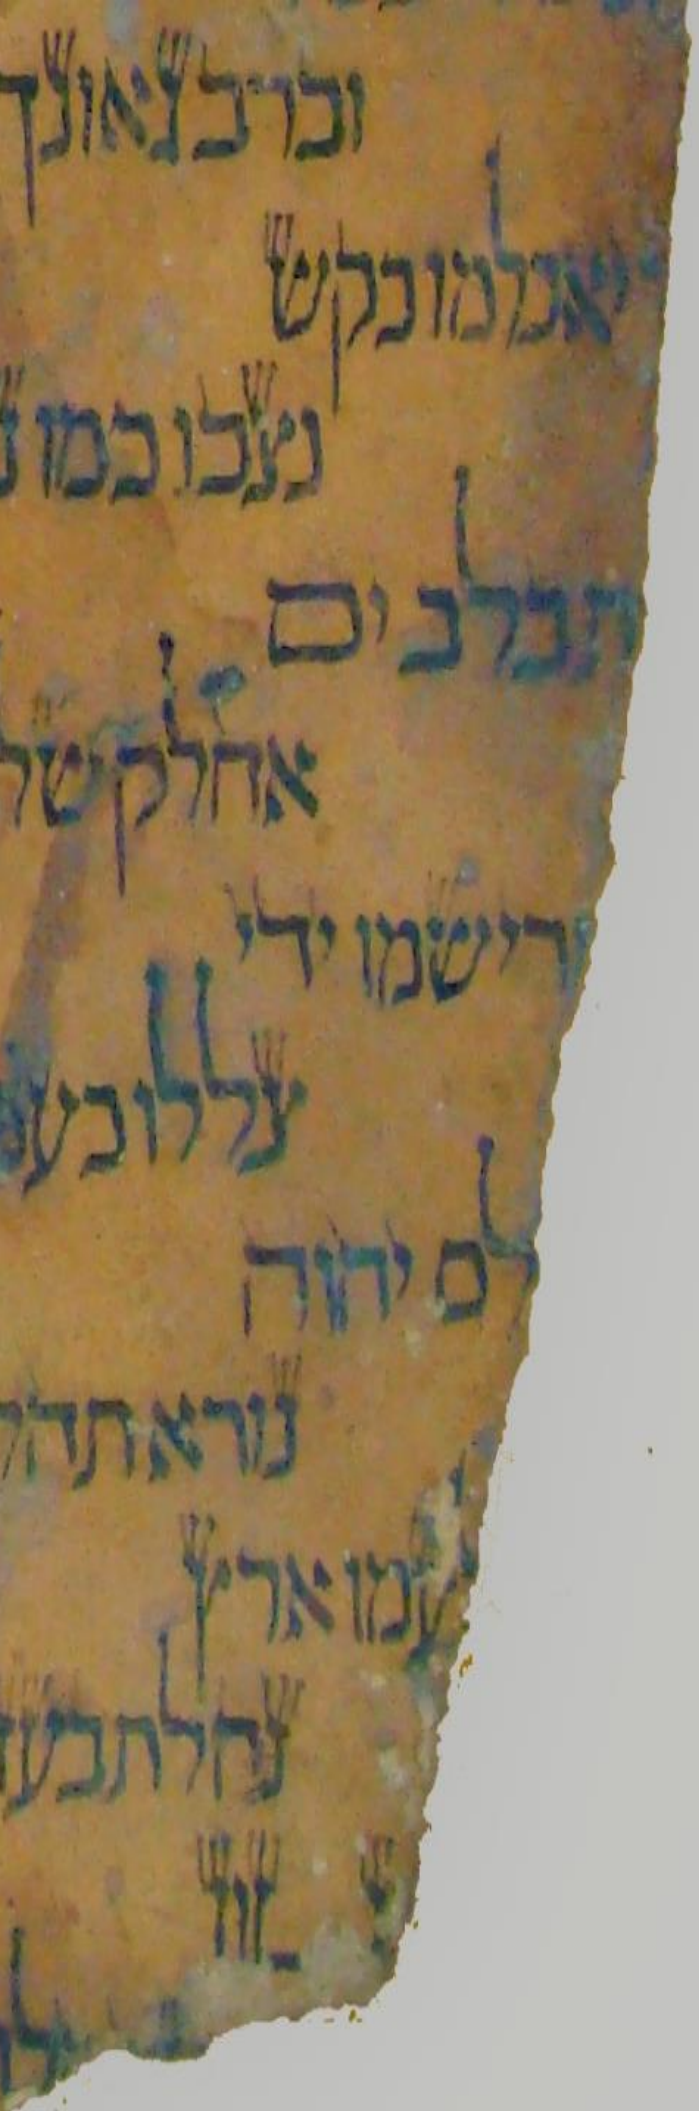 וברב גאונך
יאכלמו כקש
נצבו כמו נ
ת בלב ים
אחלק של
ורישמו ידי
צללו בעו
לם יהוה
נורא תהל
עמו ארץ
נהלת בעז